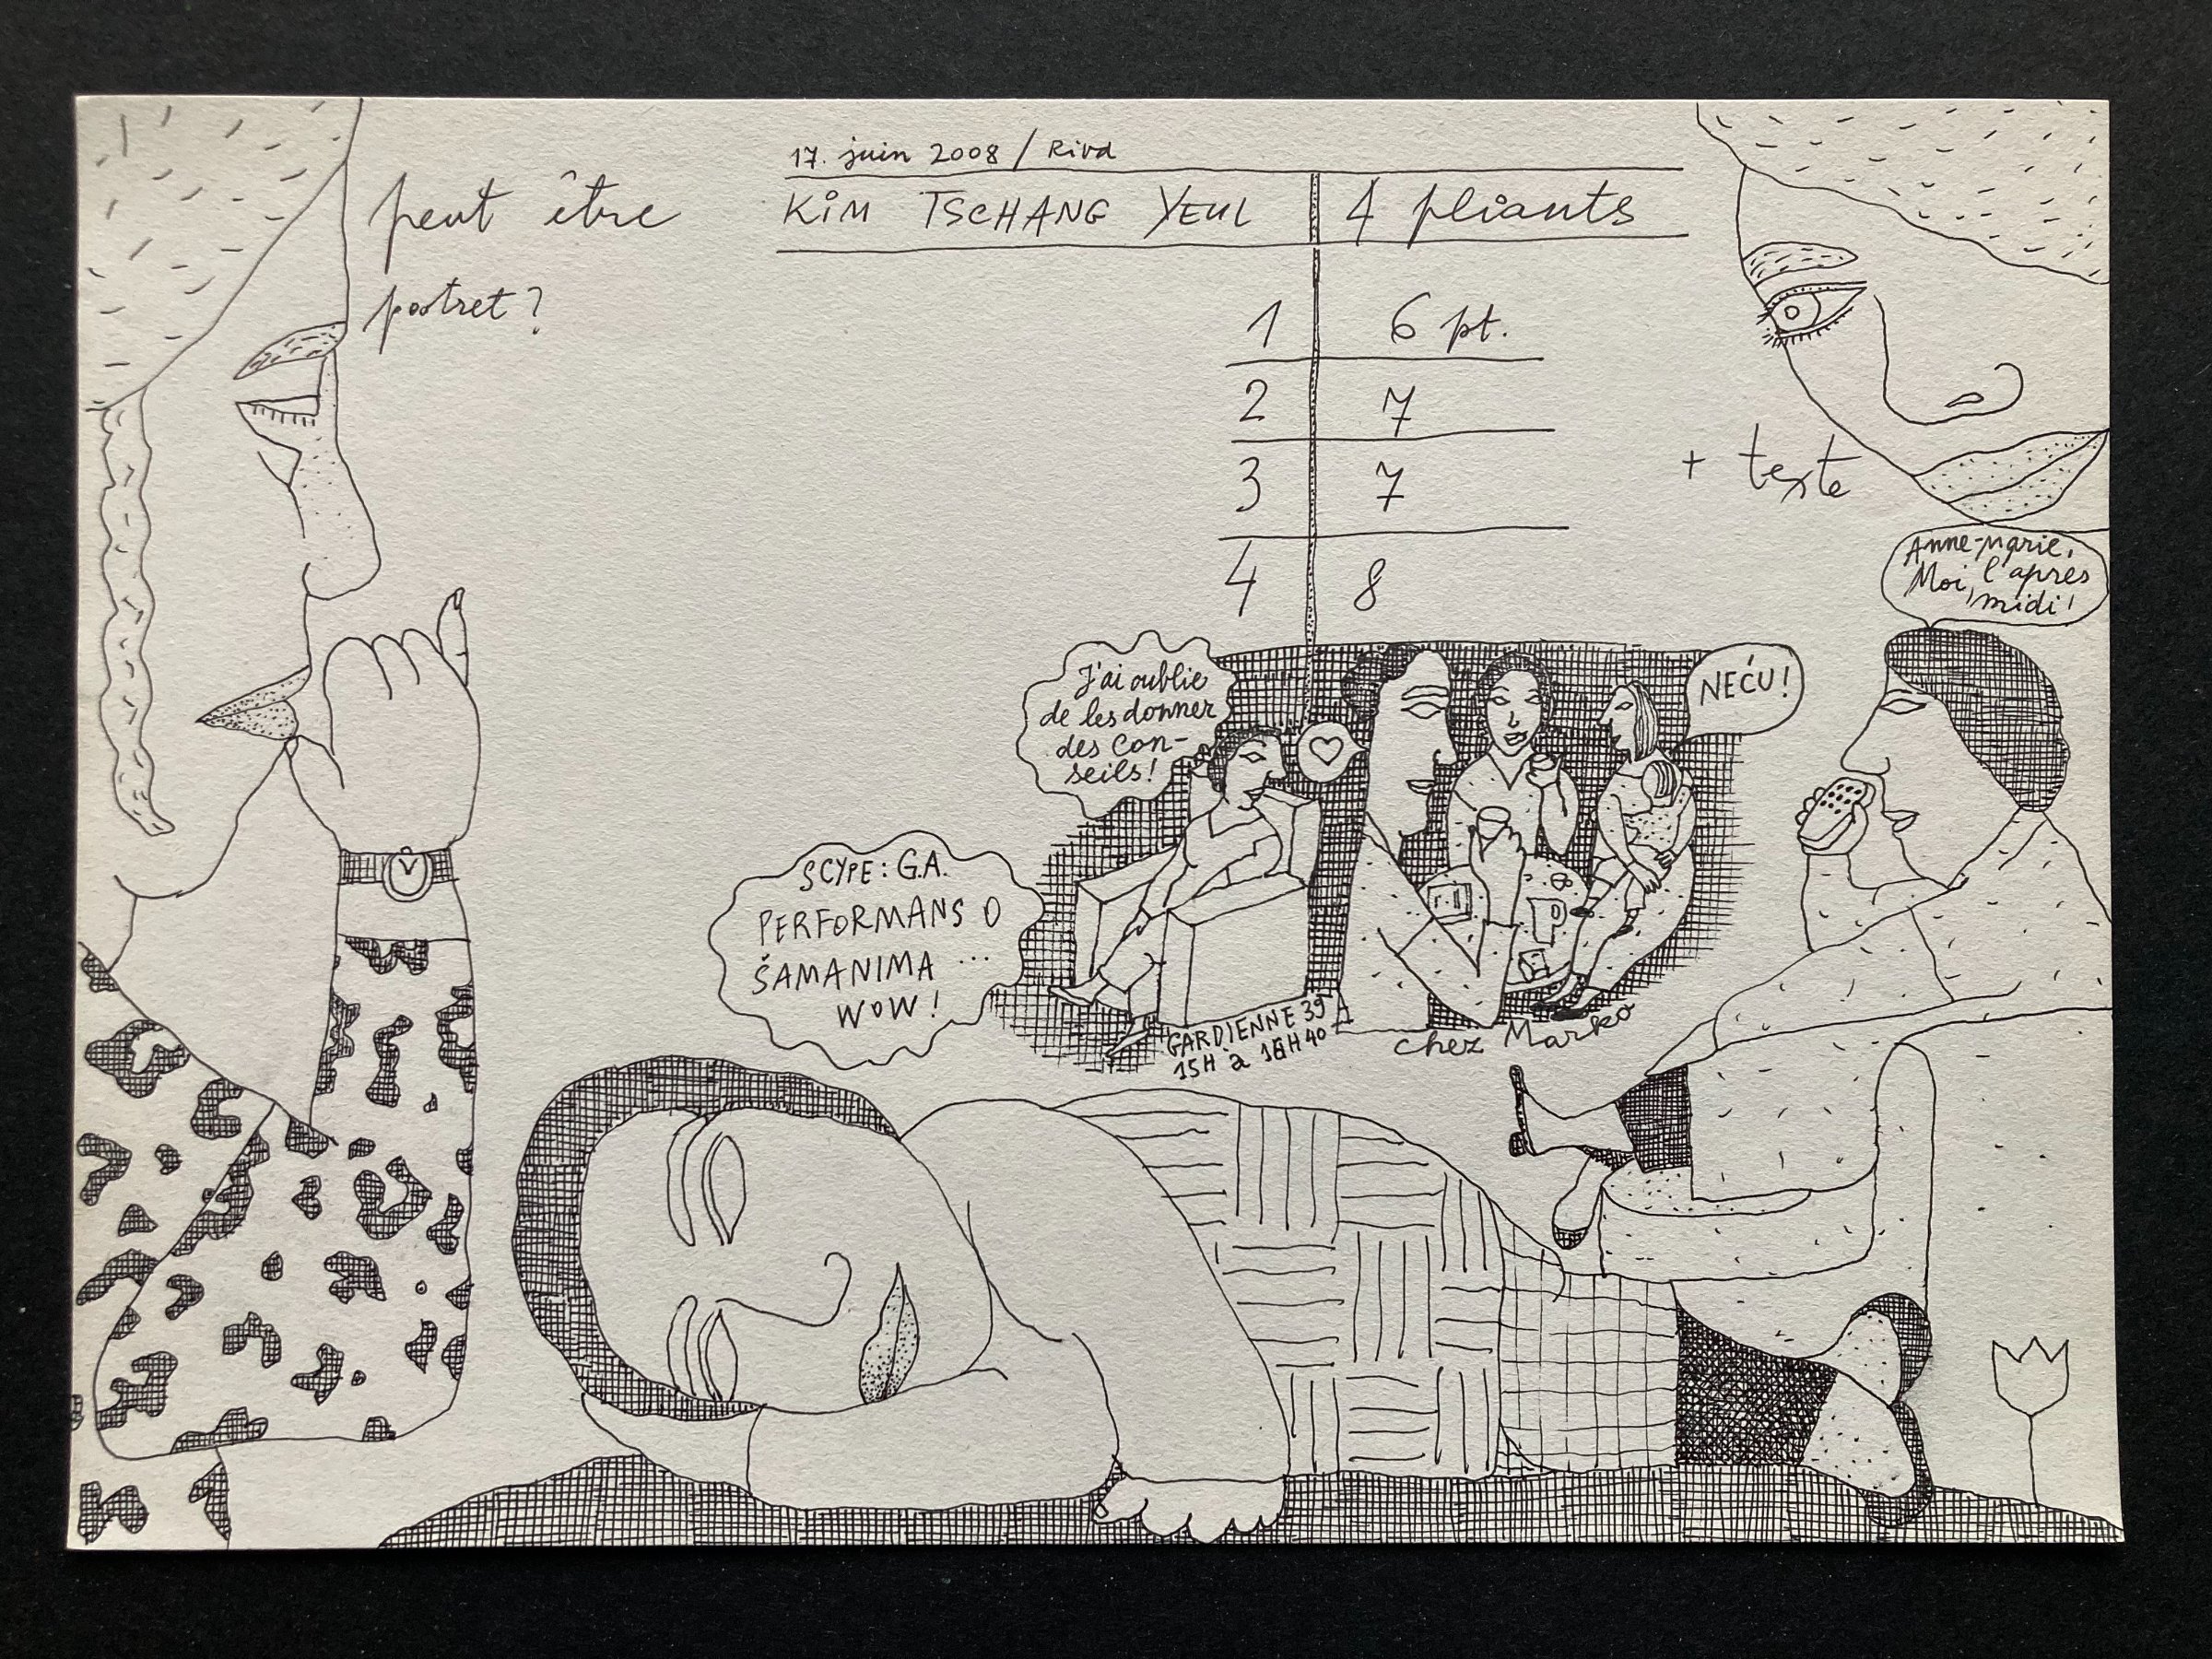 17. juin 2008 / Riva
KiM TSCHANG YEUL 4 pliants
peut être
portret?
1 6 pt.
2 7
3 7
4 8
+ texte
Anne-Marie,
Moi, l'apres
midi!
J'ai oublie
de les donner
des con-
seils!
NEĆU!
SCYPE: G.A.
PERFORMANS O
ŠAMANIMA ...
WOW!
GARDIENNE 39
15H à 16H40
chez Marko